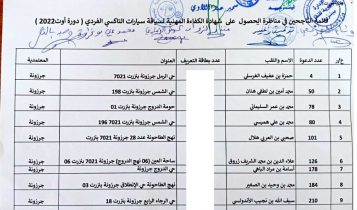 قائمة الناجحين في مناظرة الحصول على شهادة الكفاءة المهنية لسياقة سيارات التاكسي الفردي ( دورة أوت2022 )
ع/ر عدد الدعوة الاسم واللقب عدد بطاقة التعريف العنوان المعتمدية
1 4 حمزة بن عفيف الغرسلي حي الرمل جرزونة بنزرت 7021 جرزونة
2 50 مجد أمين بن لطفي عنان حي الشمس جرزونة بنزرت 198 جرزونة
3 78 مجد بن عمر السليماني حومة الدروج جرزونة بنزرت جرزونة
4 80 مجد بن علي خميسي حي الشمس جرزونة بنزرت 7021 196 جرزونة
5 101 صحبي بن العربي هلال نهج الطاحونة عدد 28 جرزونة بنزرت جرزونة
6 126 علاء الدين بن مجد الشريف زروق ساحة العين (06 نهج الدروج) جرزونة بنزرت 06 جرزونة
7 178 أسامة بن مراد الباهي نهج الدروج جرزونة بنزرت جرزونة
8 184 مجد بن وحيد بن الصغير نهج الطاحونة حي الإنطلاق جرزونة بنزرت 03 جرزونة
9 210 سيف الله بن نجيب الأندلوسي حي الرجاء الرابع جرزونة بنزرت 18 جرزونة